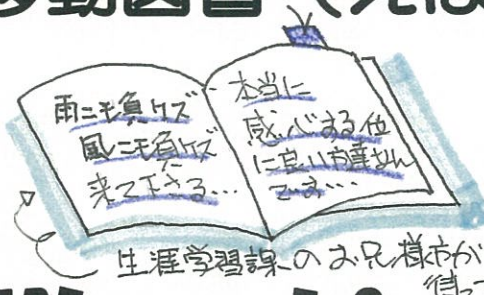 雨ニモ負ケズ
風ニモ負ケズ
来て下さる…
本当に
感心する位
に良いお達さん
です…
生涯学習課のお兄様方が
待っ